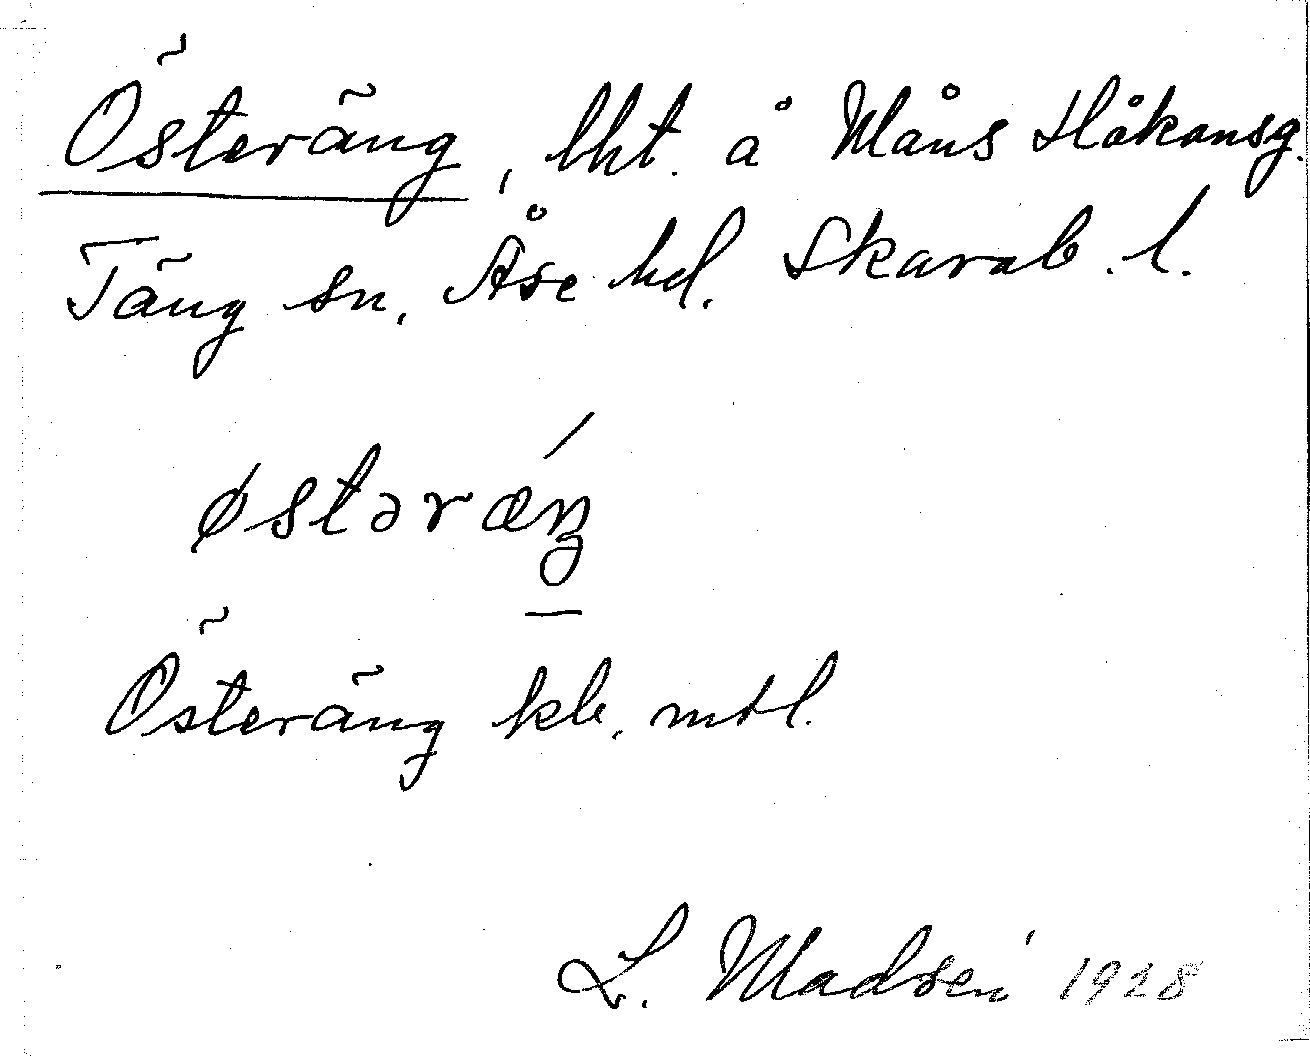 Österäng, lht. å Måns Håkansg.
Täng sn, Åse hd. Skarab. l.
østəræŋ́
Österäng kb, mtl.
L. Madsén 1928